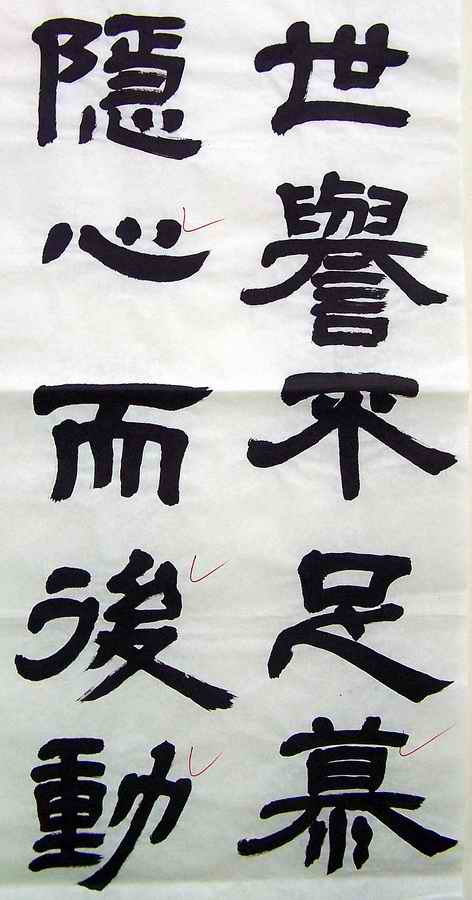 世譽不足慕
隱心而後動